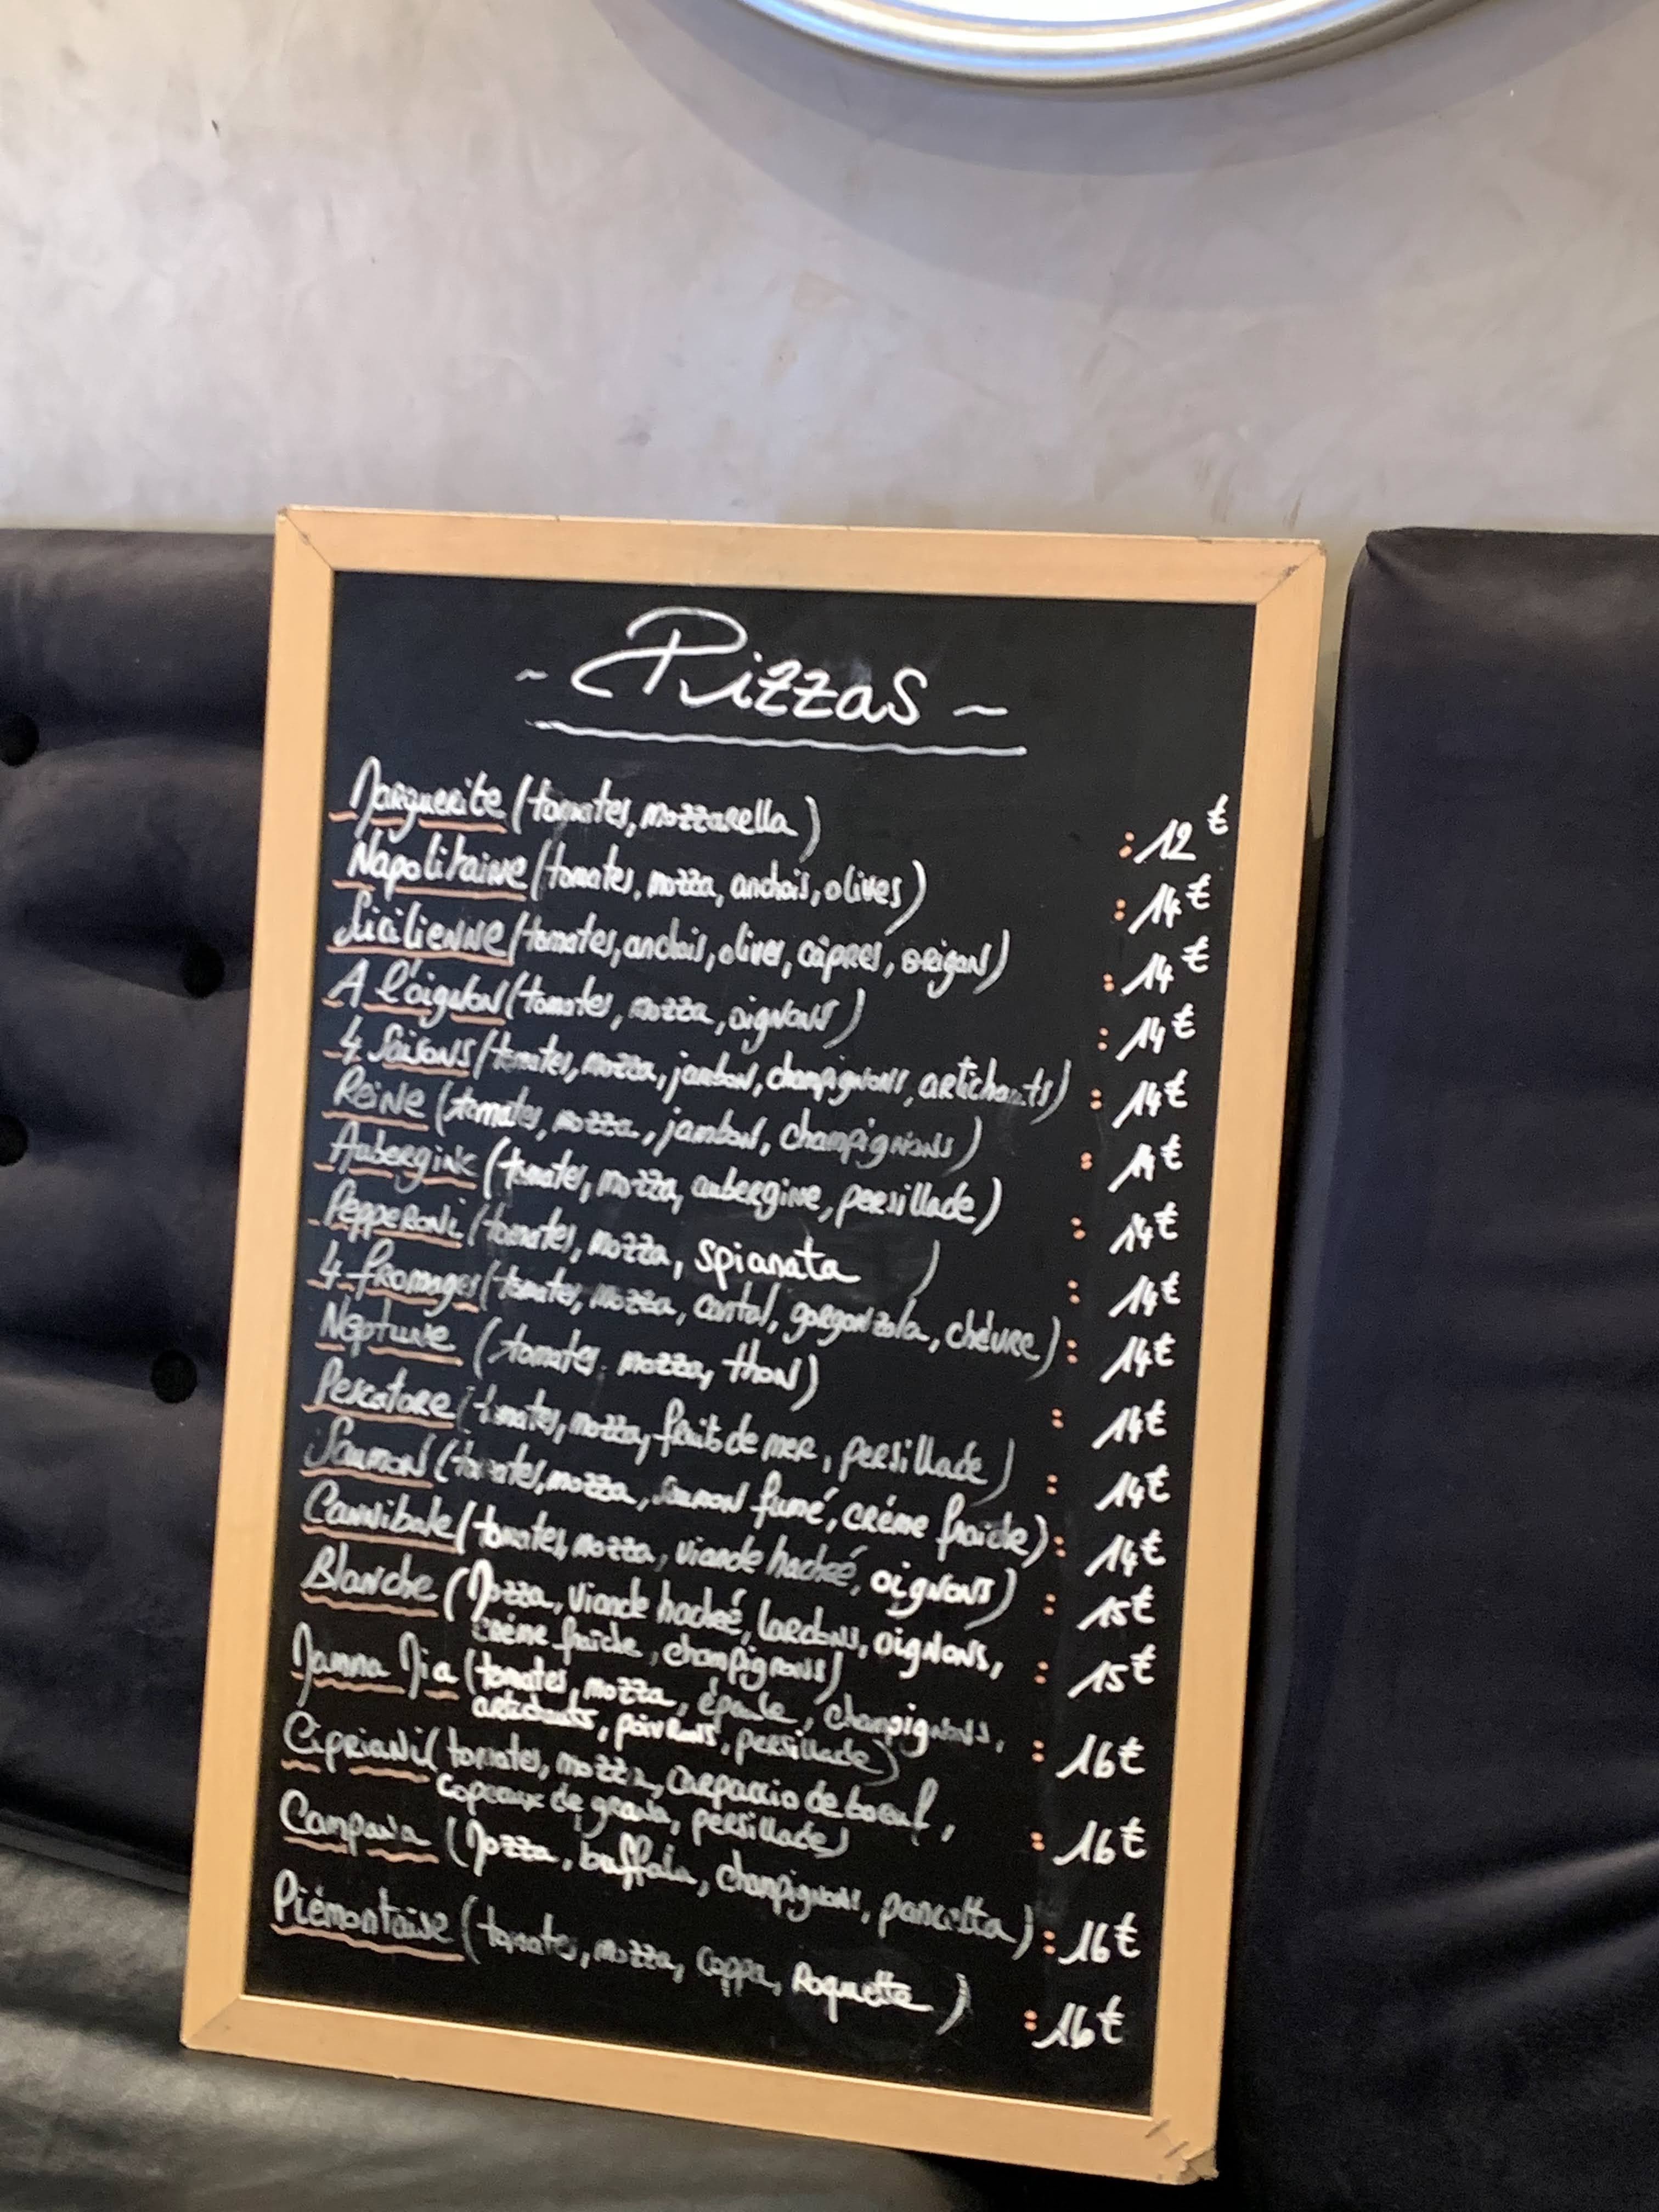 ~ Pizzas ~
Marguerite (tomates, mozzarella) : 12€
Napolitaine (tomates, mozza, anchois, olives) : 14€
Sicilienne (tomates, anchois, olives, câpres, origan) : 14€
A l'oignon (tomates, mozza, oignons) : 14€
4 Saisons (tomates, mozza, jambon, champignons, artichauts) : 14€
Reine (tomates, mozza, jambon, champignons) : 14€
Aubergine (tomates, mozza, aubergine, persillade) : 14€
Pepperoni (tomates, mozza, spianata) : 14€
4 fromages (tomates, mozza, cantal, gorgonzola, chèvre) : 14€
Neptune (tomates, mozza, thon) : 14€
Pescatore (tomates, mozza, fruits de mer, persillade) : 14€
Saumon (tomates, mozza, saumon fumé, créme fraîche) : 14€
Cannibale (tomates, mozza, viande hachée, oignons) : 15€
Blanche (Mozza, viande hachée, lardons, oignons, : 15€
créme fraîche, champignons)
Mamma Mia (tomates, mozza, épaule, champignons, : 16€
artichauts, poivrons, persillade)
Cipriani (tomates, mozza, carpaccio de boeuf, : 16€
copeaux de grana, persillade)
Campana (Mozza, buffala, champignons, pancetta) : 16€
Piémontaise (tomates, mozza, coppa, Roquette) : 16€